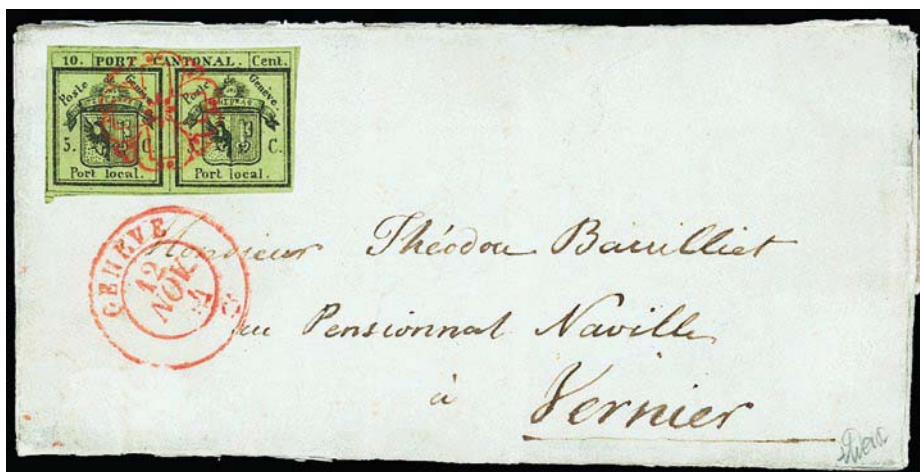 10. PORT CANTONAL. Cent.
Poste de Genève.
Poste de Genève.
5. C.
5. C.
Port local.
Port local.
GENEVE
12
NOV.
Monsieur Théodore Barrilliet
au Pensionnat Naville
à
Vernier